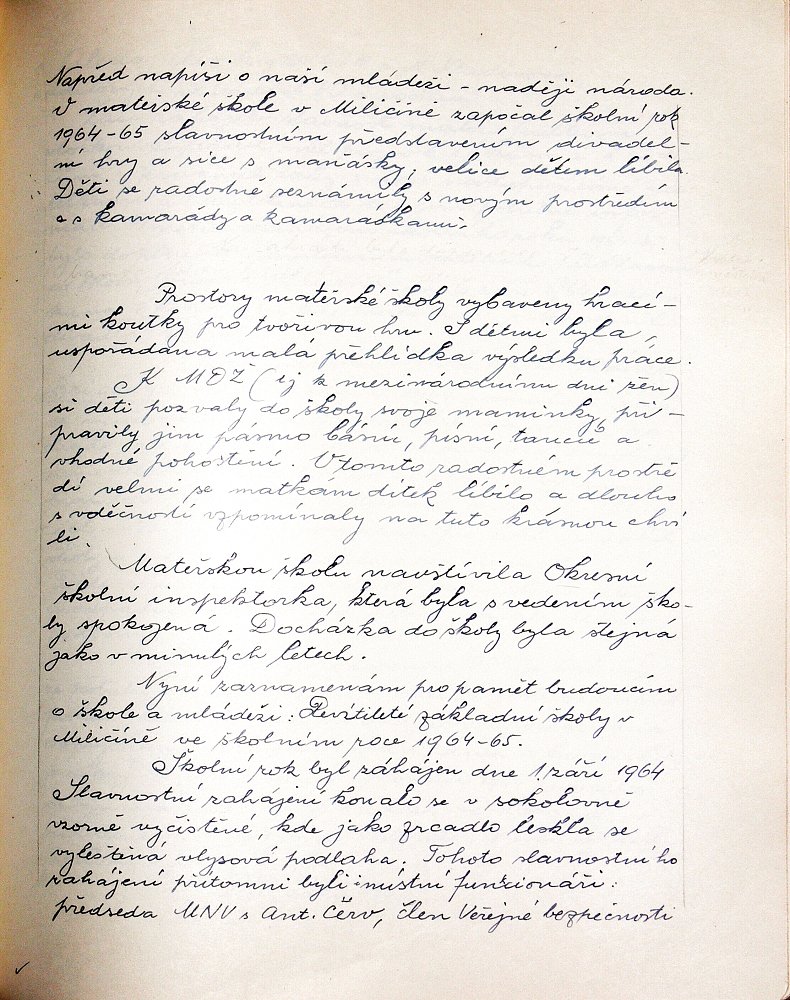 Napřed napíši o naší mládeži - naději národa.
V mateřské škole v Miličíně započal školní rok
1964-65 slavnostním představením divadel-
ní hry a sice s maňásky, velice dětem líbila.
Děti se radostně seznámily s novým prostředím
a s kamarády a kamarádkami.
Prostory mateřské školy vybaveny hrací-
mi koutky pro tvořivou hru. S dětmi byla
uspořádána malá přehlídka výsledku práce.
K MDŽ (tj k mezinárodnímu dni žen)
si děti pozvaly do školy svoje maminky, při-
pravily jim pásmo básní, písní, tanců a
vhodné pohoštění. V tomto radostném prostře
dí velmi se matkám dítek líbilo a dlouho
s vděčností vzpomínaly na tuto krásnou chví
li.
Mateřskou školu navštívila Okresní
školní inspektorka, která byla s vedením ško-
ly spokojená. Docházka do školy byla stejná
jako v minulých letech.
Nyní zaznamenám pro pamět budoucím
o škole a mládeži: Devítileté základní školy v
Miličíně ve školním roce 1964-65.
Školní rok byl zahájen dne 1. září 1964
Slavnostní zahájení konalo se v sokolovně
vzorně vyčistěné, kde jako zrcadlo leskla se
vyleštěná vlysová podlaha. Tohoto slavnostního
zahájení přítomni byli i místní funkcionáři:
předseda MNV s Ant. Červ, člen Veřejné bezpečnosti